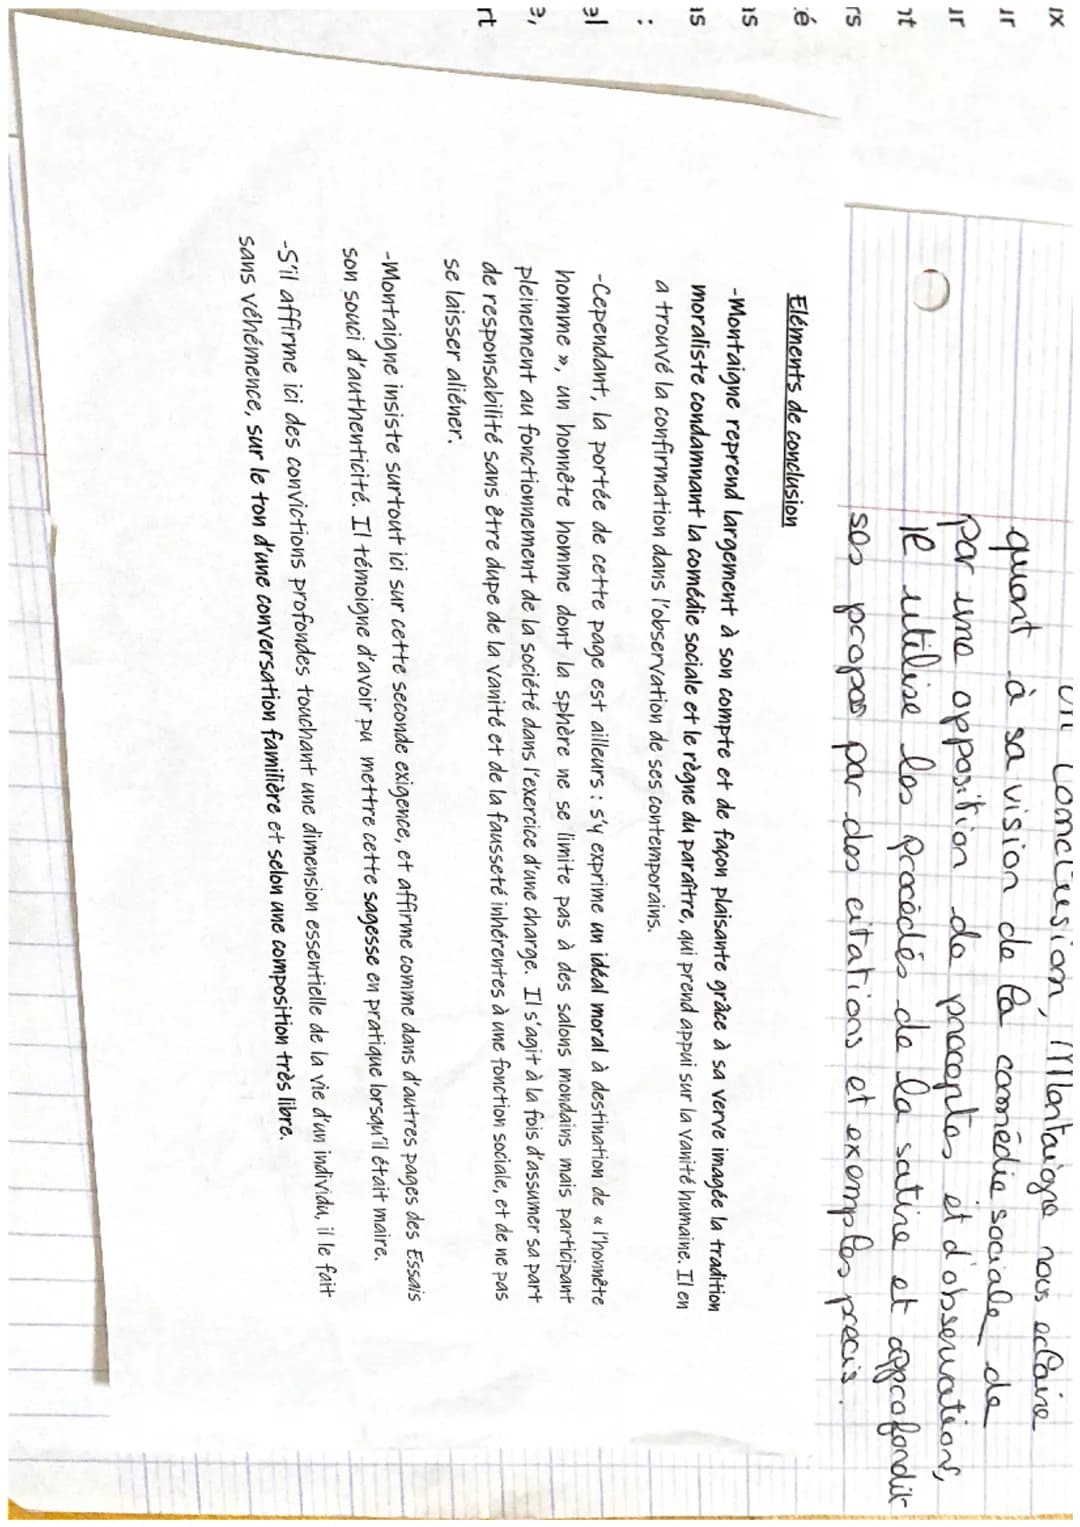 En Conclusion, Montaigne nous eclaire
quant à sa vision de la comédie sociale de
par une opposition de preceptes et d'observations,
Il utilise les procédés de la satire et approfondit
ses propos par des citations et exemples precis.
Eléments de conclusion
-Montaigne reprend largement à son compte et de façon plaisante grâce à sa verve imagée la tradition
moraliste condamnant la comédie sociale et le règne du paraître, qui prend appui sur la vanité humaine. Il en
a trouvé la confirmation dans l'observation de ses contemporains.
-Cependant, la portée de cette page est ailleurs : s'y exprime un idéal moral à destination de « l'honnête
homme », un honnête homme dont la sphère ne se limite pas à des salons mondains mais participant
pleinement au fonctionnement de la société dans l'exercice d'une charge. Il s'agit à la fois d'assumer sa part
de responsabilité sans être dupe de la vanité et de la fausseté inhérentes à une fonction sociale, et de ne pas
se laisser aliéner.
-Montaigne insiste surtout ici sur cette seconde exigence, et affirme comme dans d'autres pages des Essais
son souci d'authenticité. Il témoigne d'avoir pu mettre cette sagesse en pratique lorsqu'il était maire.
-S'il affirme ici des convictions profondes touchant une dimension essentielle de la vie d'un individu, il le fait
sans véhémence, sur le ton d'une conversation familière et selon une composition très libre.
ix
ir
ir
nt
rs
é
is
is
:
el
e,
rt